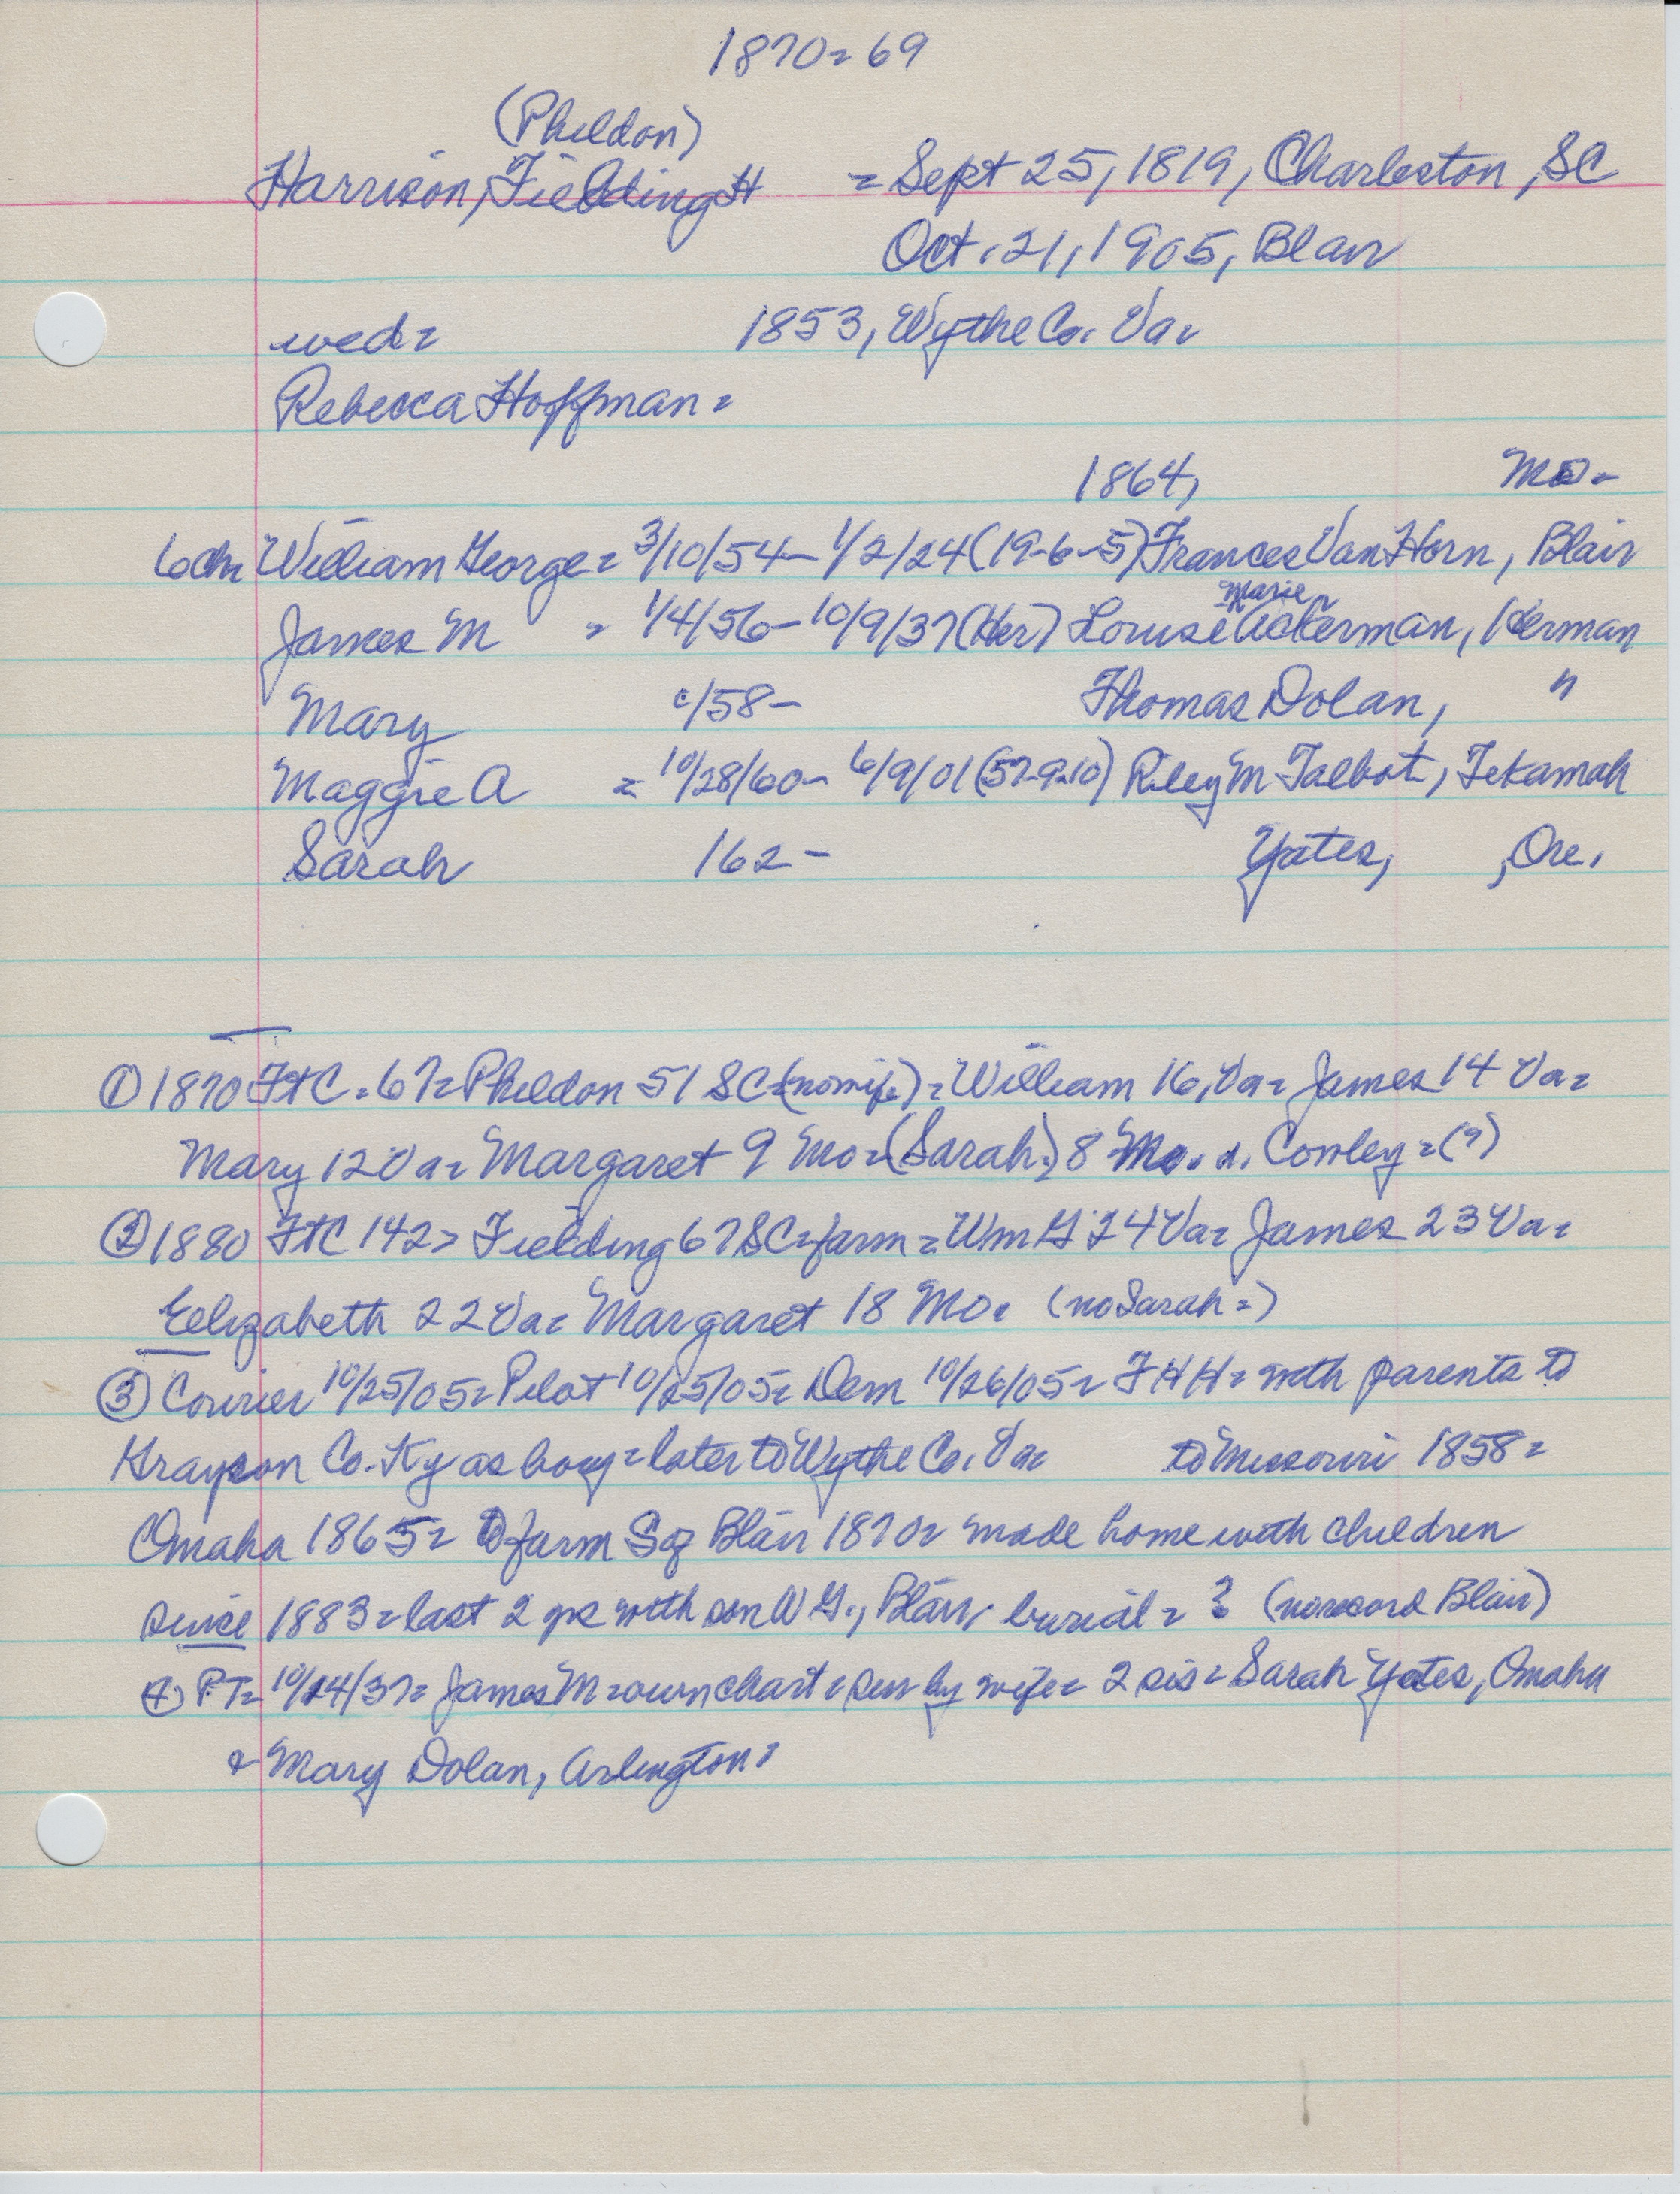 1870=69
(Pheldon)
Harrison, Fielding H = Sept 25, 1819, Charleston, SC
Oct. 21, 1905, Blair
wed= 1853, Wythe Co. Va=
Rebecca Hoffman=
1864, Mo=
6 chn William George= 3/10/54- 1/2/24 (19-6-5) Frances Van Horn, Blair
Marie
James M = 1/4/56- 10/9/37 (Her) Louise Ackerman, Herman
Mary c/58- Thomas Dolan, "
Maggie A = 10/28/60- 6/9/01 (57-9-10) Riley M Talbot, Tekamah
Sarah 162- Yates, , Ore.
① 1870 FtC. 67= Pheldon 51 SC=(no wife)= William 16, Va= James 14 Va=
Mary 12 Va= Margaret 9 Mo=(Sarah) 8 Mo. Conley=(?)
② 1880 FtC 142> Fielding 67 SC=farm= Wm G 24 Va= James 23 Va=
Eelizabeth 22 Va= Margaret 18 Mo. (no Sarah=)
③ Courier 10/25/05= Pilot 10/25/05= Dem 10/26/05= FHH= with parents to
Grayson Co. Ky as boy= later to Wythe Co. Va= to Missouri 1858=
Omaha 1865= to farm S of Blair 1870= made home with children
since 1883= last 2 yrs with son W G., Blair, burial=? (no record Blair)
④ PT= 10/14/37= James M= own chart= sur by wife= 2 sis= Sarah Yates, Omaha
& Mary Dolan, Arlington=